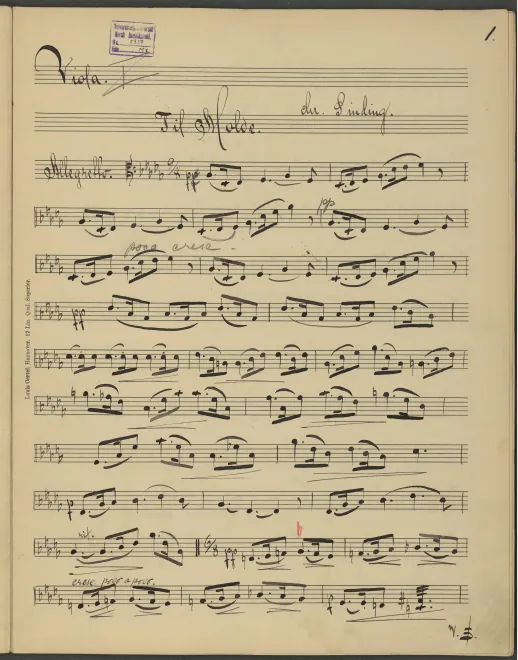 1.
Viola. I
Til Molde.
Chr. Sinding.
Allegretto. 9/8 pp
pp
poco cresc.
pp
p
rit. 6/8 pp
cresc. poco a poco.
f
V. S.
Louis Oertel, Hannover. 12 Lin.